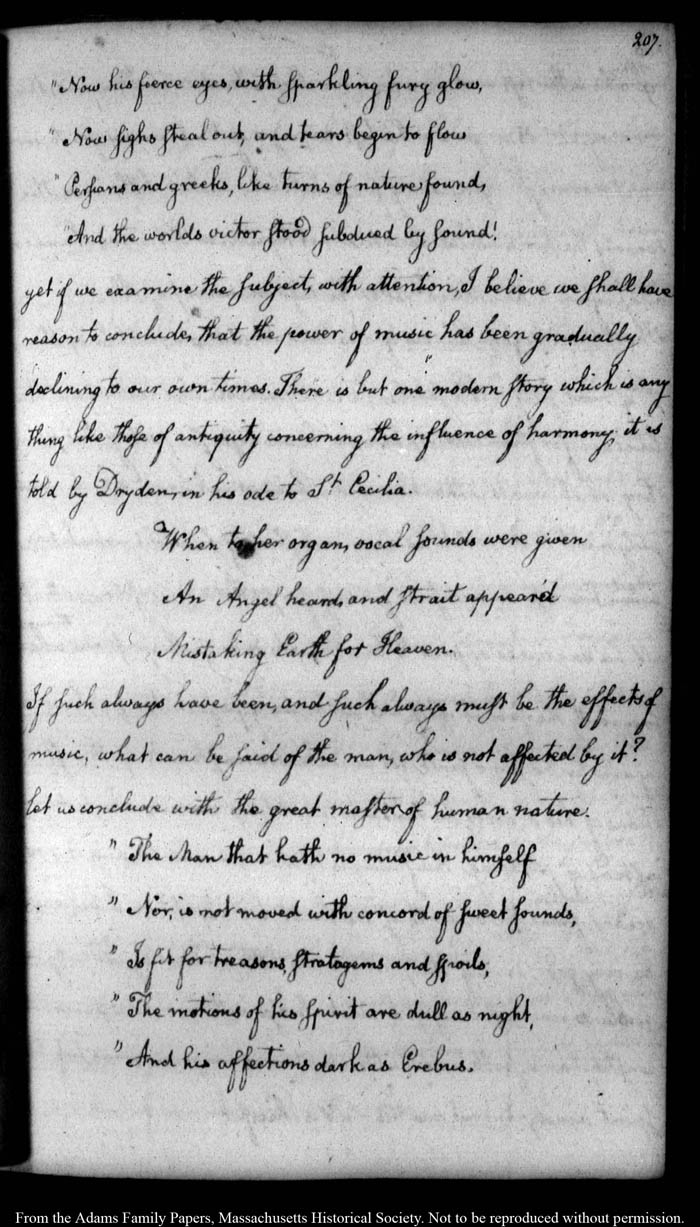 207.
"Now his fierce eyes, with sparkling fury glow,
"Now sighs steal out, and tears begin to flow
"Persians and greeks, like turns of nature found,
"And the worlds victor stood subdued by sound!
yet if we examine the subject, with attention, I believe we shall have
reason to conclude, that the power of music has been gradually
declining to our own times. There is but one "modern story which is any
thing like those of antiquity concerning the influence of harmony, it is
told by Dryden, in his ode to St Cecilia.
When to her organ, vocal sounds were given
An Angel heard, and strait appear'd
Mistaking Earth for Heaven.
If such always have been, and such always must be the effects of
music, what can be said of the man, who is not affected by it?
let us conclude with the great master of human nature.
" The Man that hath no music in himself
" Nor, is not moved with concord of sweet sounds,
" Is fit for treasons, stratagems and spoils,
" The motions of his spirit are dull as night,
" And his affections dark as Erebus.
From the Adams Family Papers, Massachusetts Historical Society. Not to be reproduced without permission.